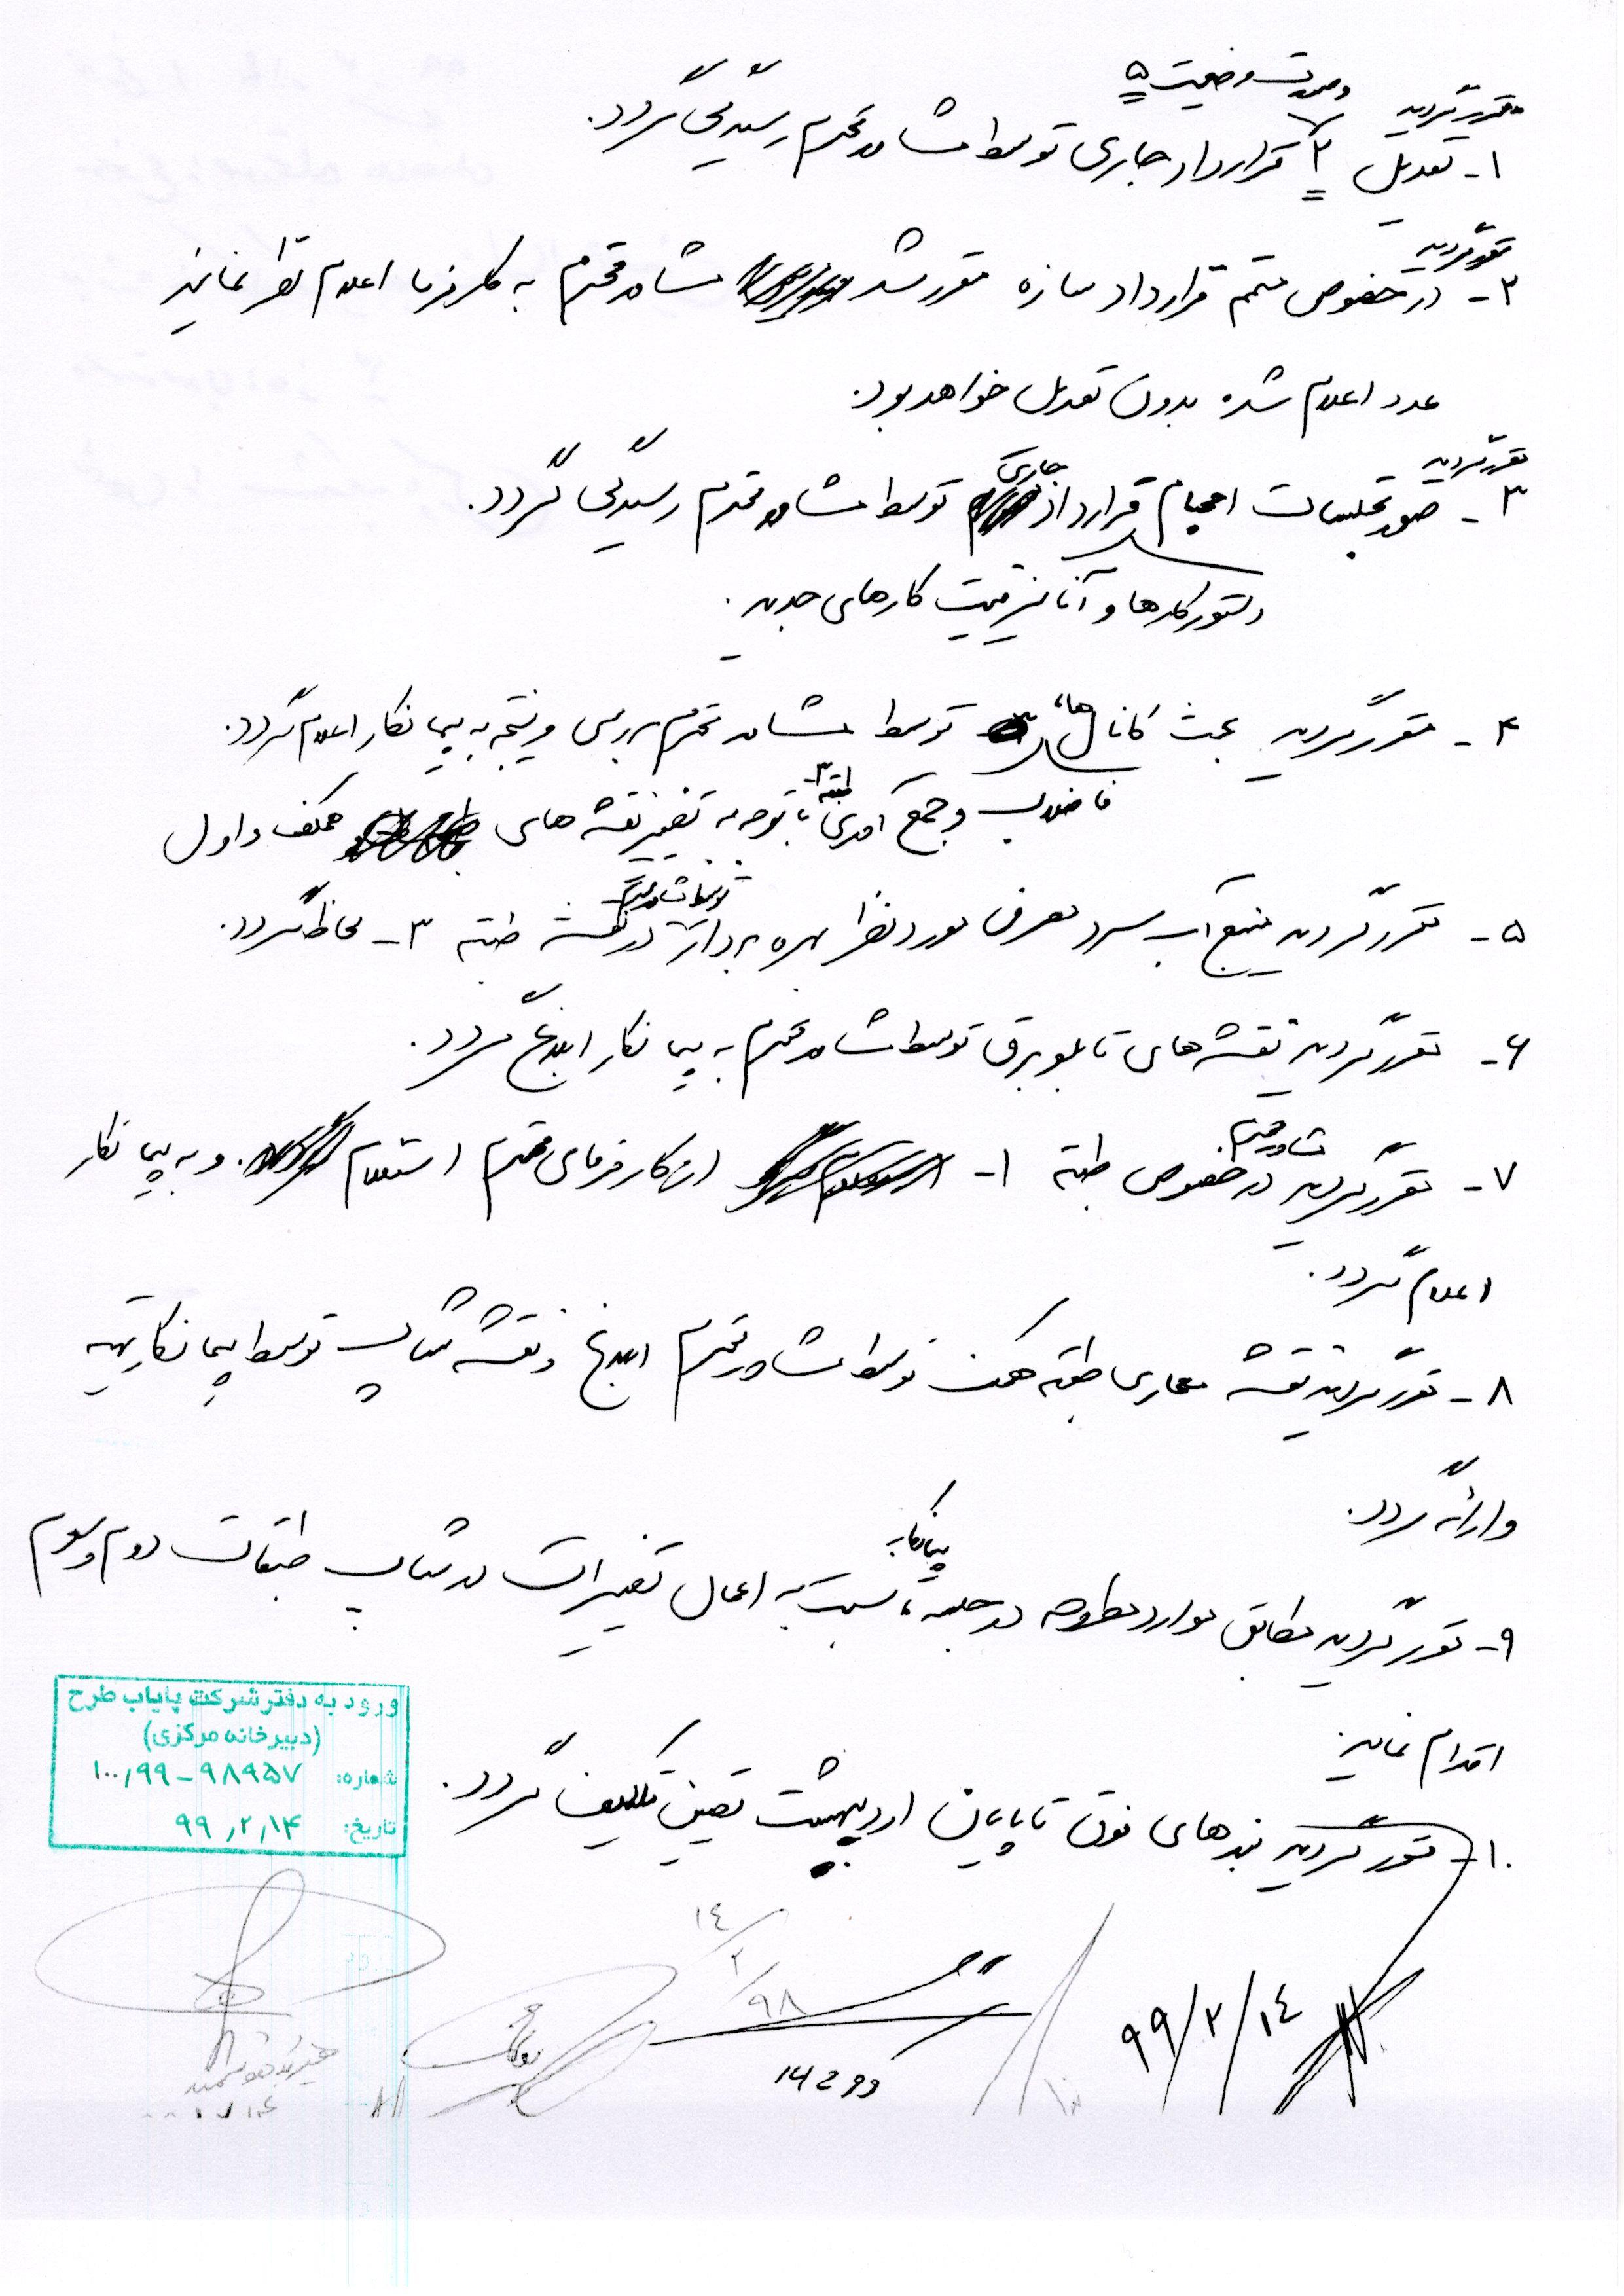 مقرر گردید
و صورت وضعیت ۵
۱- تعدیل ۲ قرارداد جاری توسط مشاور محترم رسیدگی گردد.
مقرر گردید
۲- در خصوص متمم قرارداد سازه مقرر شد مشاور محترم به کارفرما اعلام نظر نمایند
عدد اعلام شده بدون تعدیل خواهد بود.
مقرر گردید
۳- صورتجلسات احجام قرارداد جاری توسط مشاور محترم رسیدگی گردد.
دستور کارها و آنالیز قیمت کارهای جدید.
۴- مقرر گردید بحث کانال های توسط مشاور محترم بررسی و نتیجه به پیمانکار اعلام گردد.
فاضلاب و جمع آوری طبقه ۳- با توجه به تغییر نقشه های همکف و اول
۵- مقرر گردید منبع آب سرد مصرفی مورد نظر بهره بردار توسط مشاور محترم در نقشه طبقه ۳- لحاظ گردد.
۶- مقرر گردید نقشه های تابلو برق توسط مشاور محترم به پیمانکار ابلاغ گردد.
۷- مقرر گردید مشاور محترم در خصوص طبقه ۱- از کارفرمای محترم استعلام و به پیمانکار
اعلام گردد.
۸- مقرر گردید نقشه معماری طبقه همکف توسط مشاور محترم ابلاغ و نقشه شاپ توسط پیمانکار تهیه
و ارائه گردد.
۹- مقرر گردید مطابق موارد مطروحه در جلسه، پیمانکار نسبت به اعمال تغییرات در شاپ طبقات دوم و سوم
اقدام نماید.
۱۰- مقرر گردید بندهای فوق تا پایان اردیبهشت تعیین تکلیف گردد.
ورود به دفتر شرکت پایاب طرح
(دبیرخانه مرکزی)
شماره: ۱۰۰٫۹۹-۹۸۹۵۷
تاریخ: ۹۹٫۲٫۱۴
۹۹/۲/۱۴
۱۴/۲/۹۸